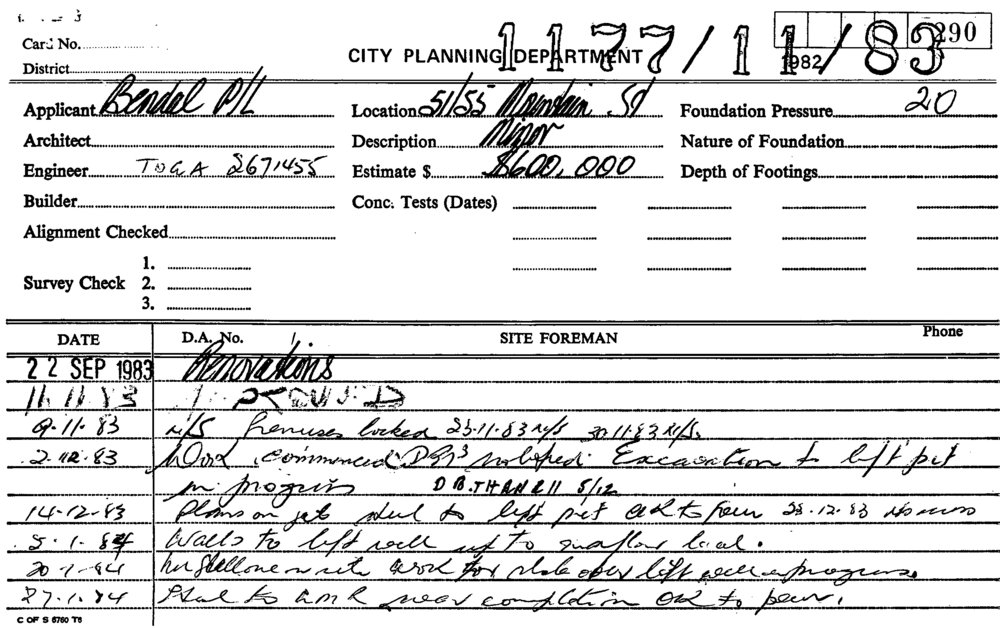 Card No.
CITY PLANNING DEPARTMENT 1177/11/83 1982/ 290
District
Applicant Bendal P/L Location 51/55 Mountain St Foundation Pressure 20
Architect Description Minor Nature of Foundation
Engineer TOGA 2671455 Estimate $ $600,000 Depth of Footings
Builder Conc. Tests (Dates)
Alignment Checked
1.
Survey Check 2.
3.
DATE D.A. No. SITE FOREMAN Phone
22 SEP 1983 Renovations
11.11.83
9.11.83 N/S Premises locked 23.11.83 N/S 30.11.83 N/S
2.12.83 Work commenced Excavation to lift pit
in progress 5/12
14.12.83 Plans on job steel to lift pit OK to pour 23.12.83
5.1.84 Walls to lift well up to level.
20.1.84 on site work for slab over lift well in progress
27.1.84 Steel to LMR near completion OK to pour.
C OF S 6760 T6